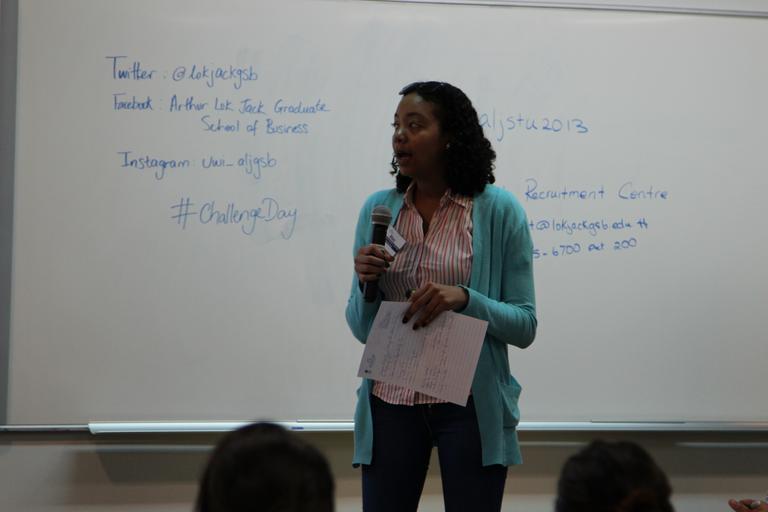 Twitter : @lokjackgsb
Facebook : Arthur Lok Jack Graduate
School of Business
Instagram: uwi_aljgsb
#ChallengeDay
aljstu2013
Recruitment Centre
t@lokjackgsb.edu.tt
5-6700 ext 200